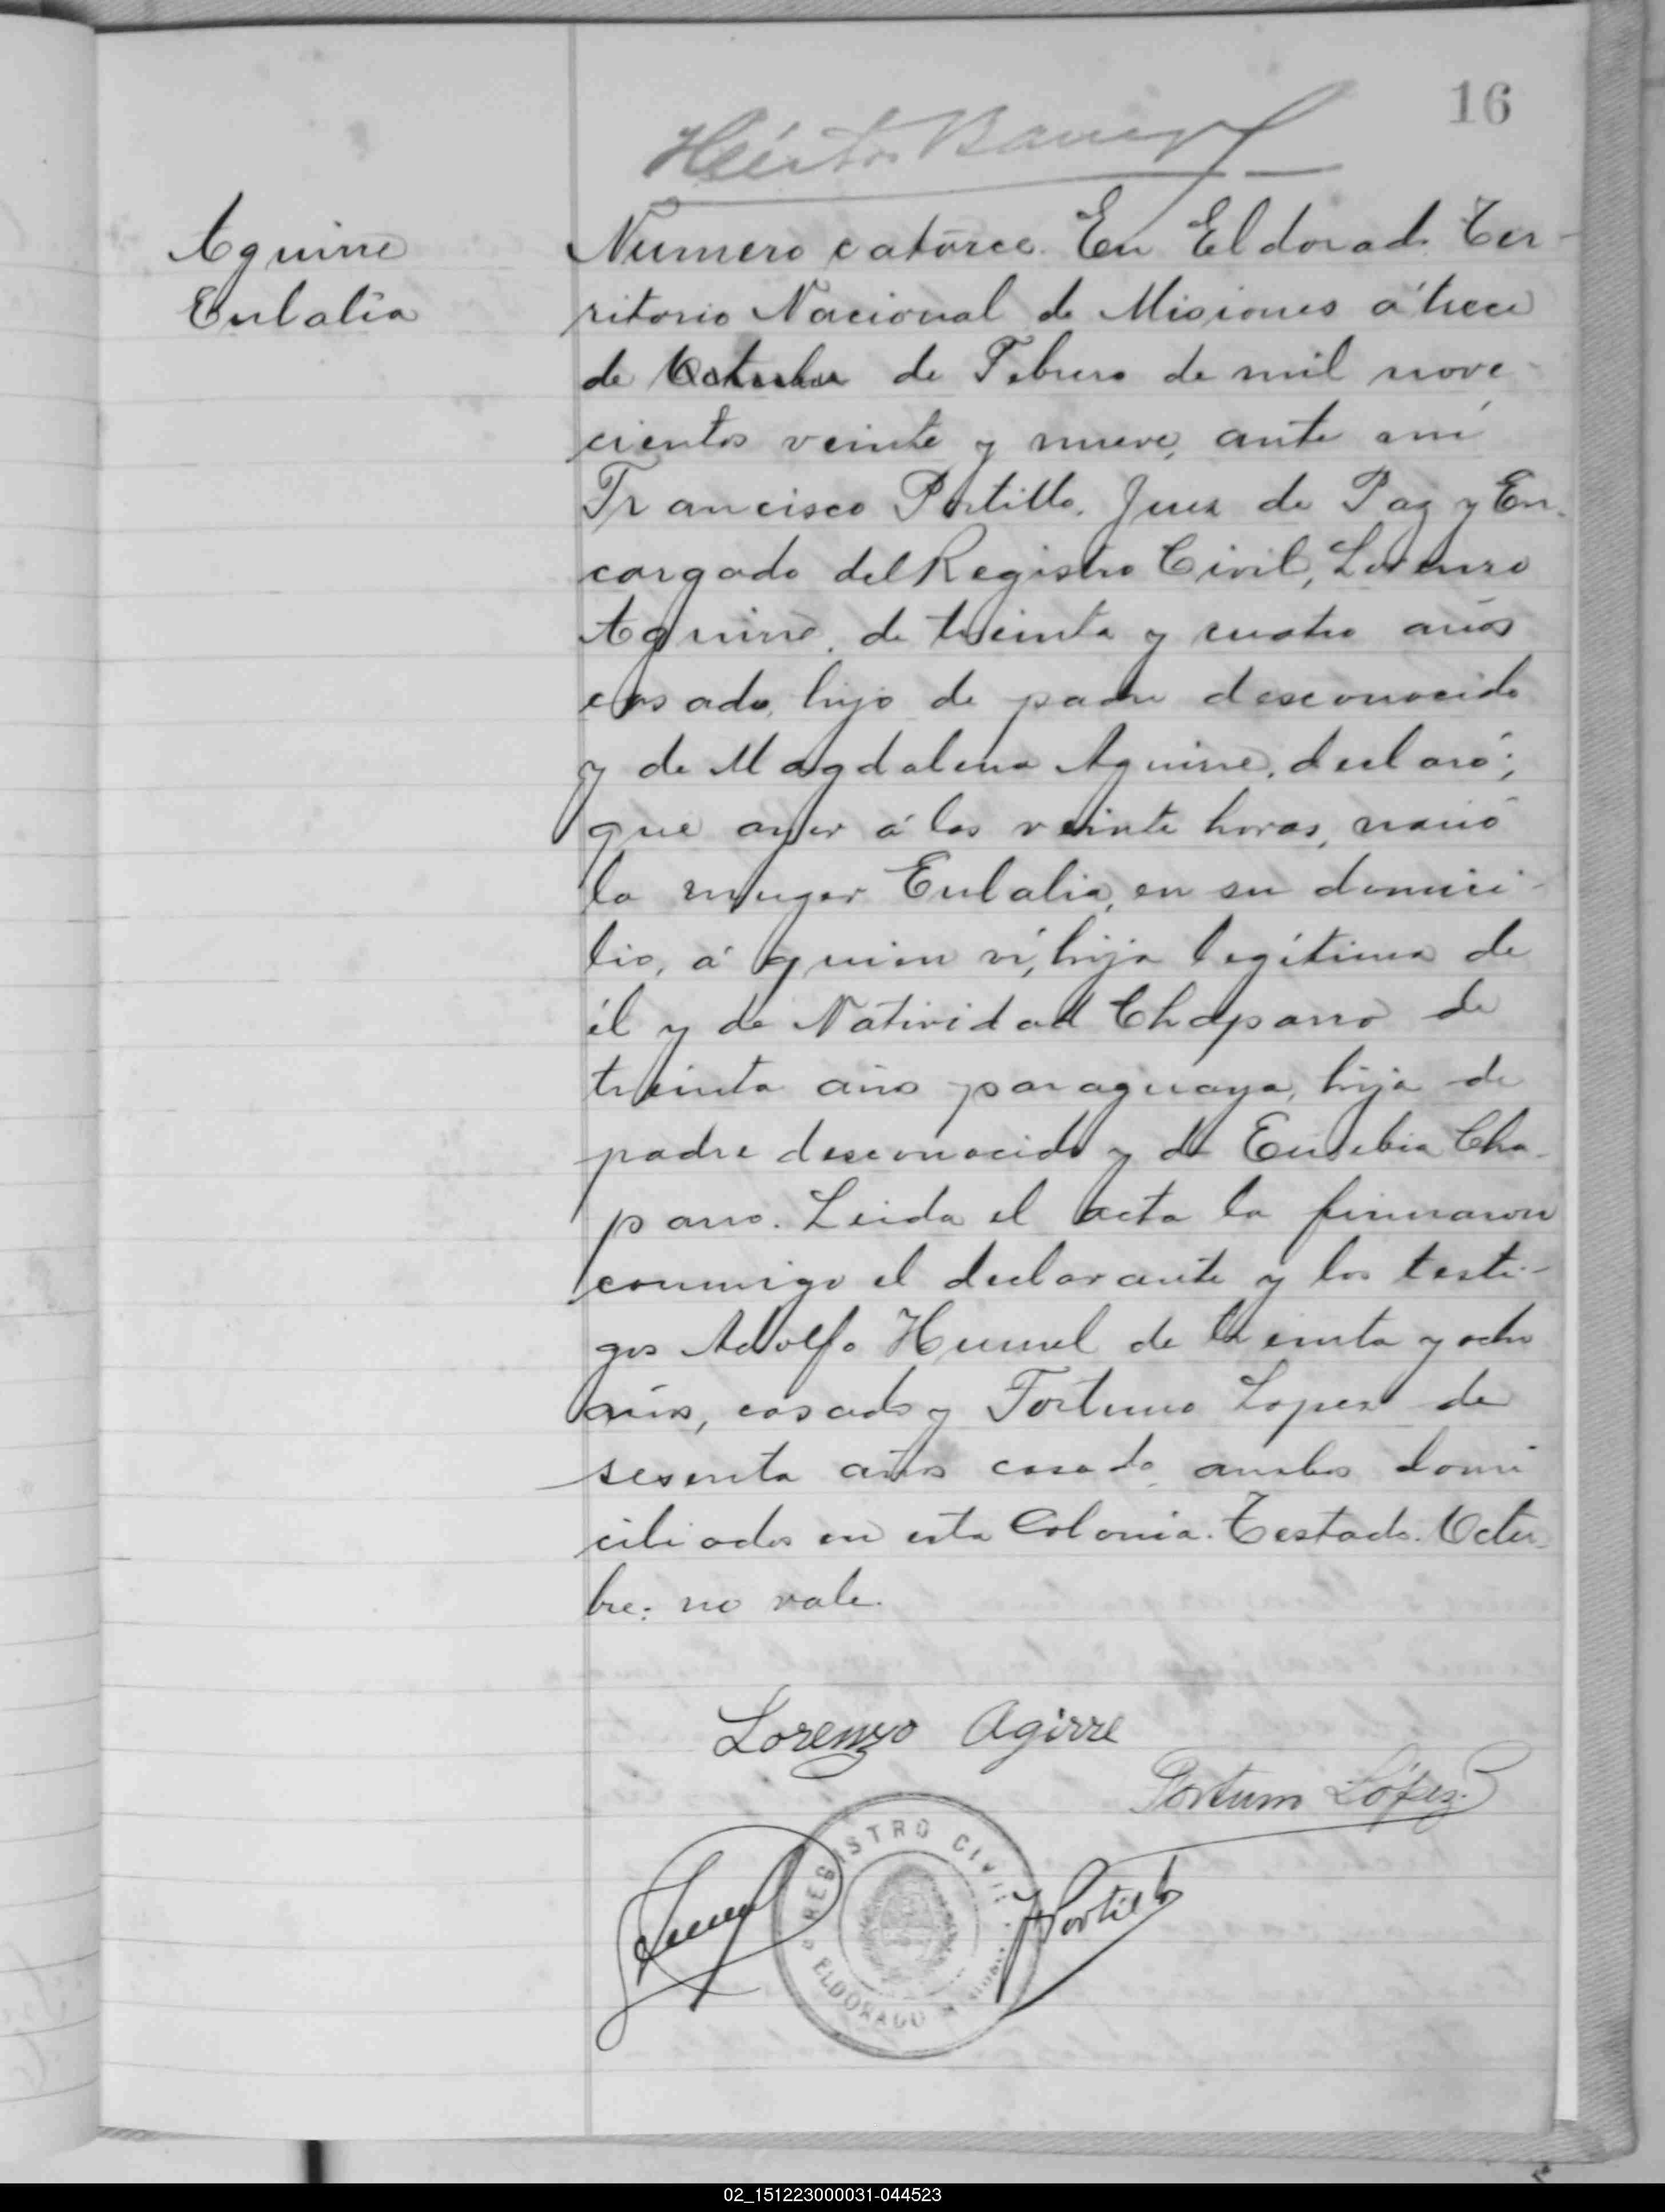 16
Aguirre
Eulalia
Número catorce. En Eldorado Ter-
ritorio Nacional de Misiones á trece
de Octubre de Febrero de mil nove-
cientos veinte y nueve, ante mí
Francisco Portillo, Juez de Paz y En-
cargado del Registro Civil, Lorenzo
Aguirre, de treinta y cuatro años
casado, hijo de padre desconocido
y de Magdalena Aguirre, declaró;
que ayer á las veinte horas, nació
la muger Eulalia, en su domici-
lio, á quien ví, hija legítima de
él y de Natividad Chaparro de
treinta año paraguaya, hija de
padre desconocido y de Eusebia Cha-
parro. Leida el acta la firmaron
conmigo el declarante y los testi-
gos Adolfo Hummel de treinta y ocho
años, casado y Fortuno Lopez de
sesenta años casado ambos domi
ciliados en esta Colonia. Testado. Octu-
bre: no vale.
Lorenzo Agirre
Fortuno López
REGISTRO CIVIL
ELDORADO
FPortillo
02_151223000031-044523